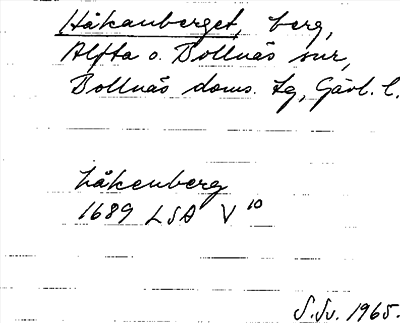 Håkanberget, berg,
Alfta o. Bollnäs snr,
Bollnäs doms. lg, Gävl. l.
håkenberg
1689 LSA V 10
S.Sv. 1965.